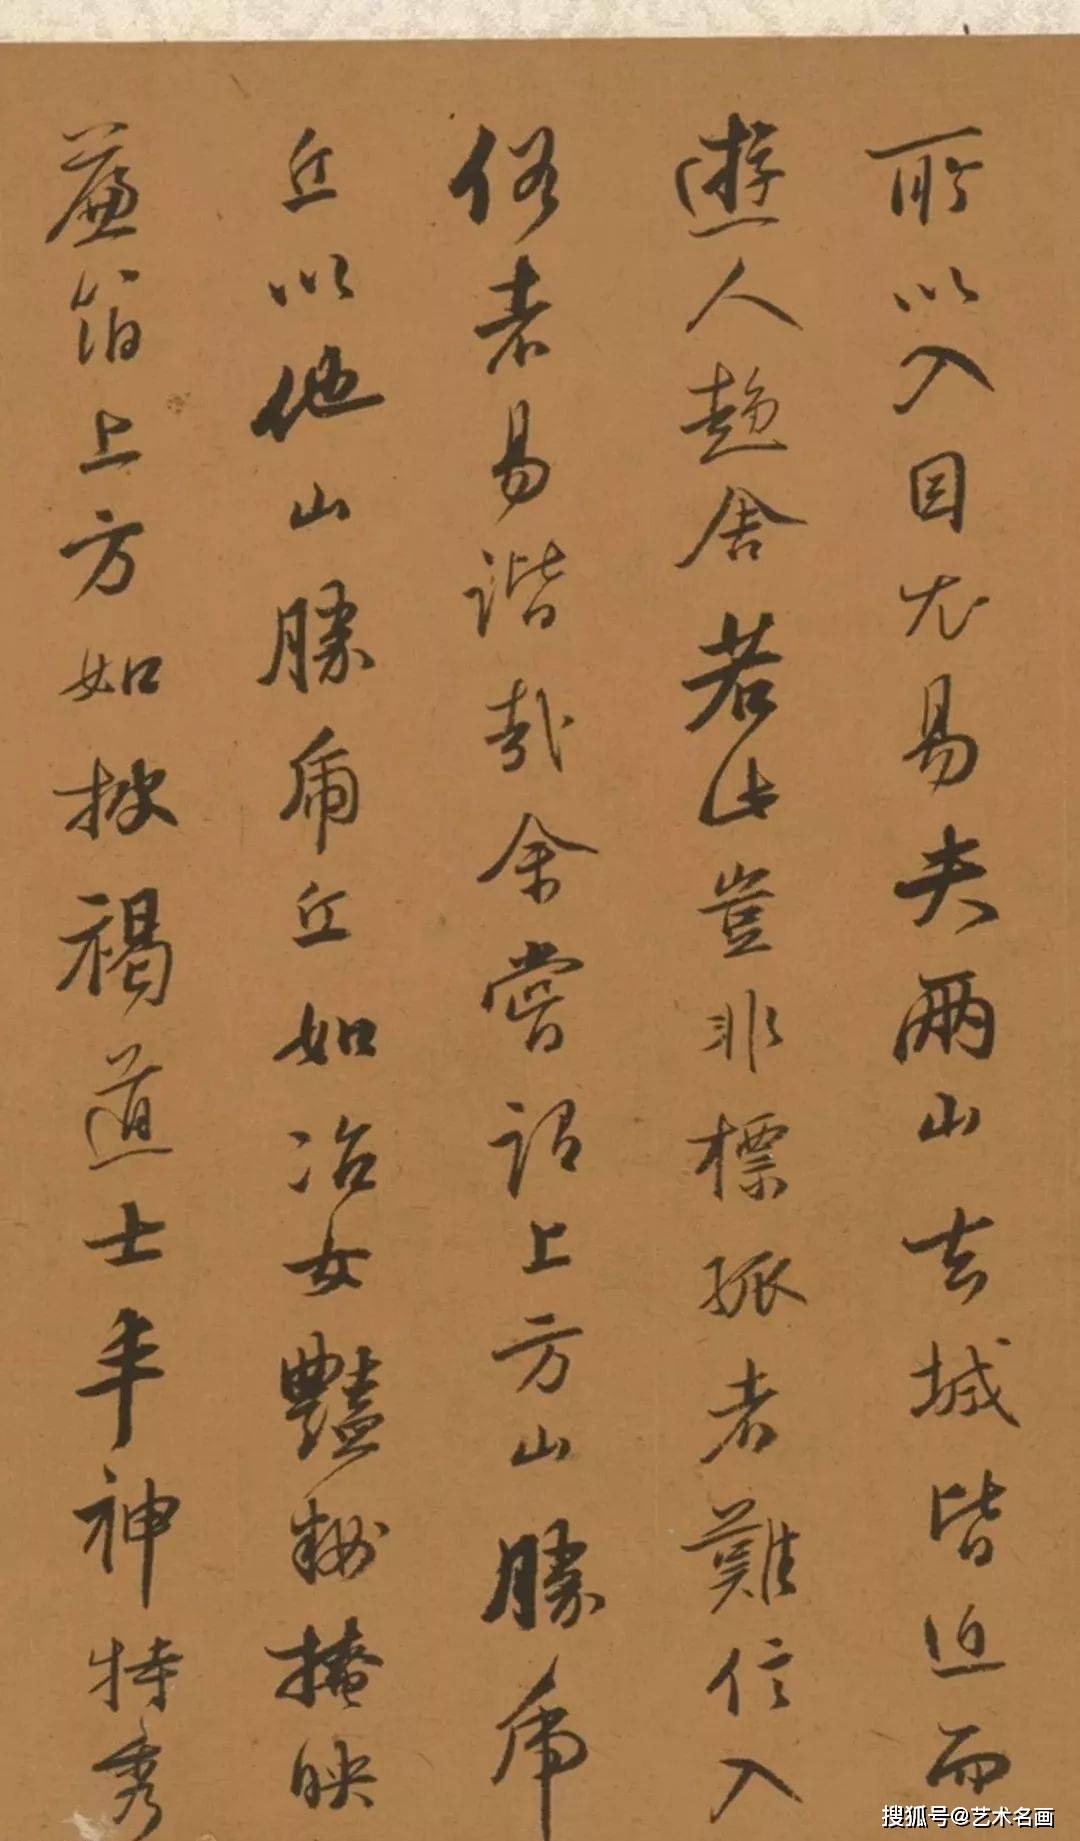 所以入目尤易夫兩山去城皆迫而
遊人趨舍若此豈非標孤者難信入
俗者易諧哉余嘗謂上方山勝虎
丘以他山勝虎丘如冶女艷粧掩映
簾箔上方如披褐道士丰神特秀
搜狐号@艺术名画